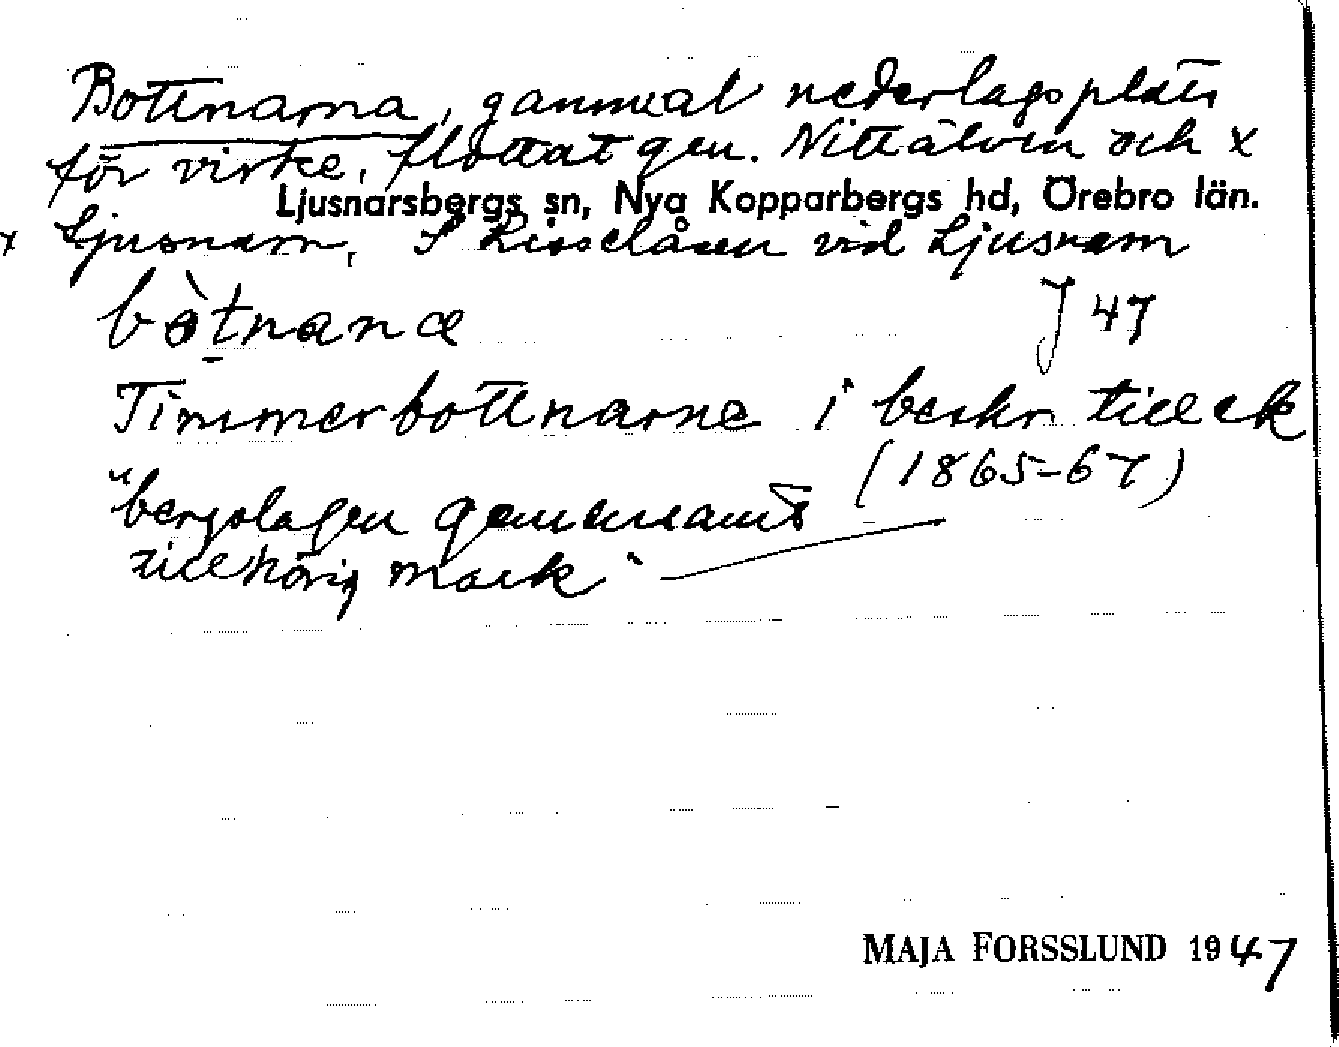 Bottnarna, gammal nederlagsplats
för virke, flottat gen. Nittälven och x
Ljusnarsbergs sn, Nya Kopparbergs hd, Örebro län.
x Ljusnarn, S Lisselåsen vid Ljusnarn
bòtnana J 47
Timmerbottnarne i beskr. till ek
(1865-67)
"bergslagen gemensamt
tillhörig mark"
MAJA FORSSLUND 1947